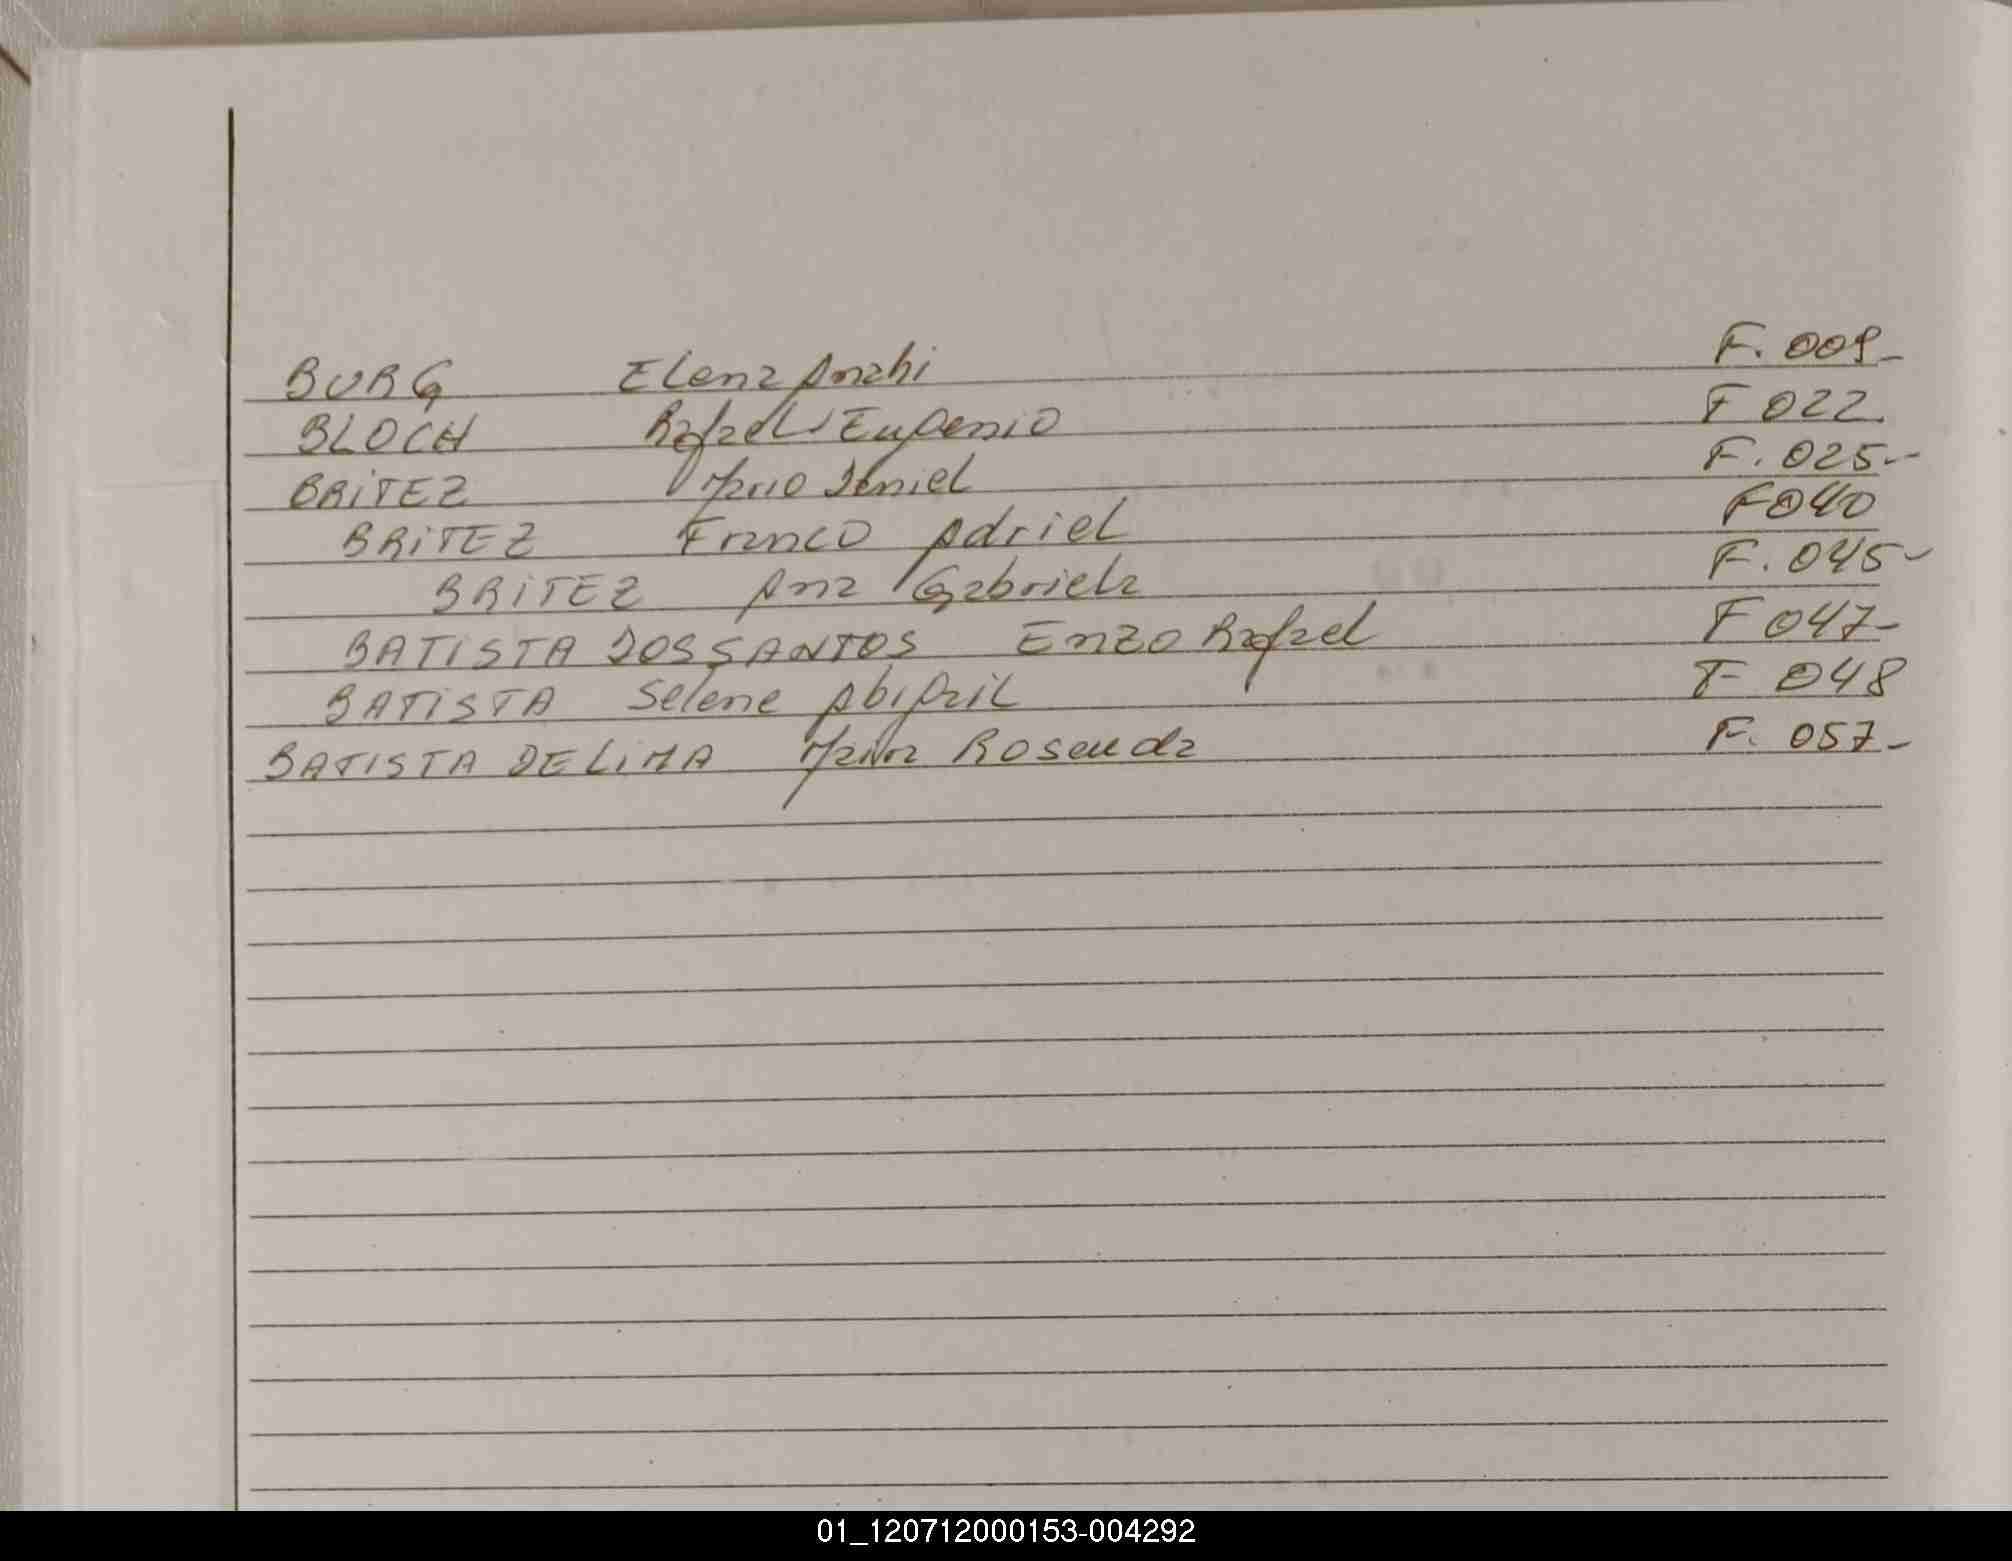 BURG Elena Anahi F. 009-
BLOCH Rafael Eugenio F 022.
BRITEZ Mario Daniel F. 025-
BRITEZ Franco Adriel F040
BRITEZ Ana Gabriela F. 045-
BATISTA DOS SANTOS Enzo Rafael F 047-
BATISTA Selene Abigail F 048
BATISTA DE LIMA Rosenda F. 057-
01_120712000153-004292